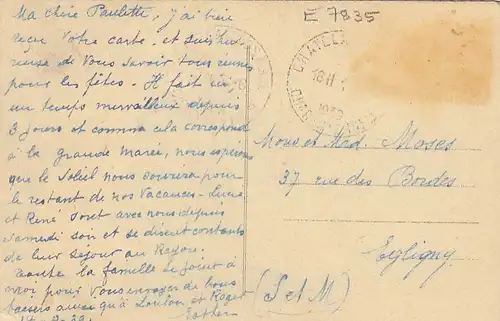 Ma chère Paulette, j'ai bien
reçu votre carte, et suis heu-
reuse de vous savoir tous réunis
pour les fêtes. Il fait ici,
un temps merveilleux depuis
3 jours et comme cela correspond
à la grande Marée, nous espérons
que le Soleil nous sourira pour
le restant de nos Vacances -
et René sont avec nous depuis
samedi soir et se disent contents
de leur séjour au
toute la famille se joint à
moi pour vous envoyer de bons
baisers ainsi qu'à Loulou et Roger
Esther
E 7835
18-11
Mons et Md. Moses
37 rue des Bordes
Egligny
(S et M)